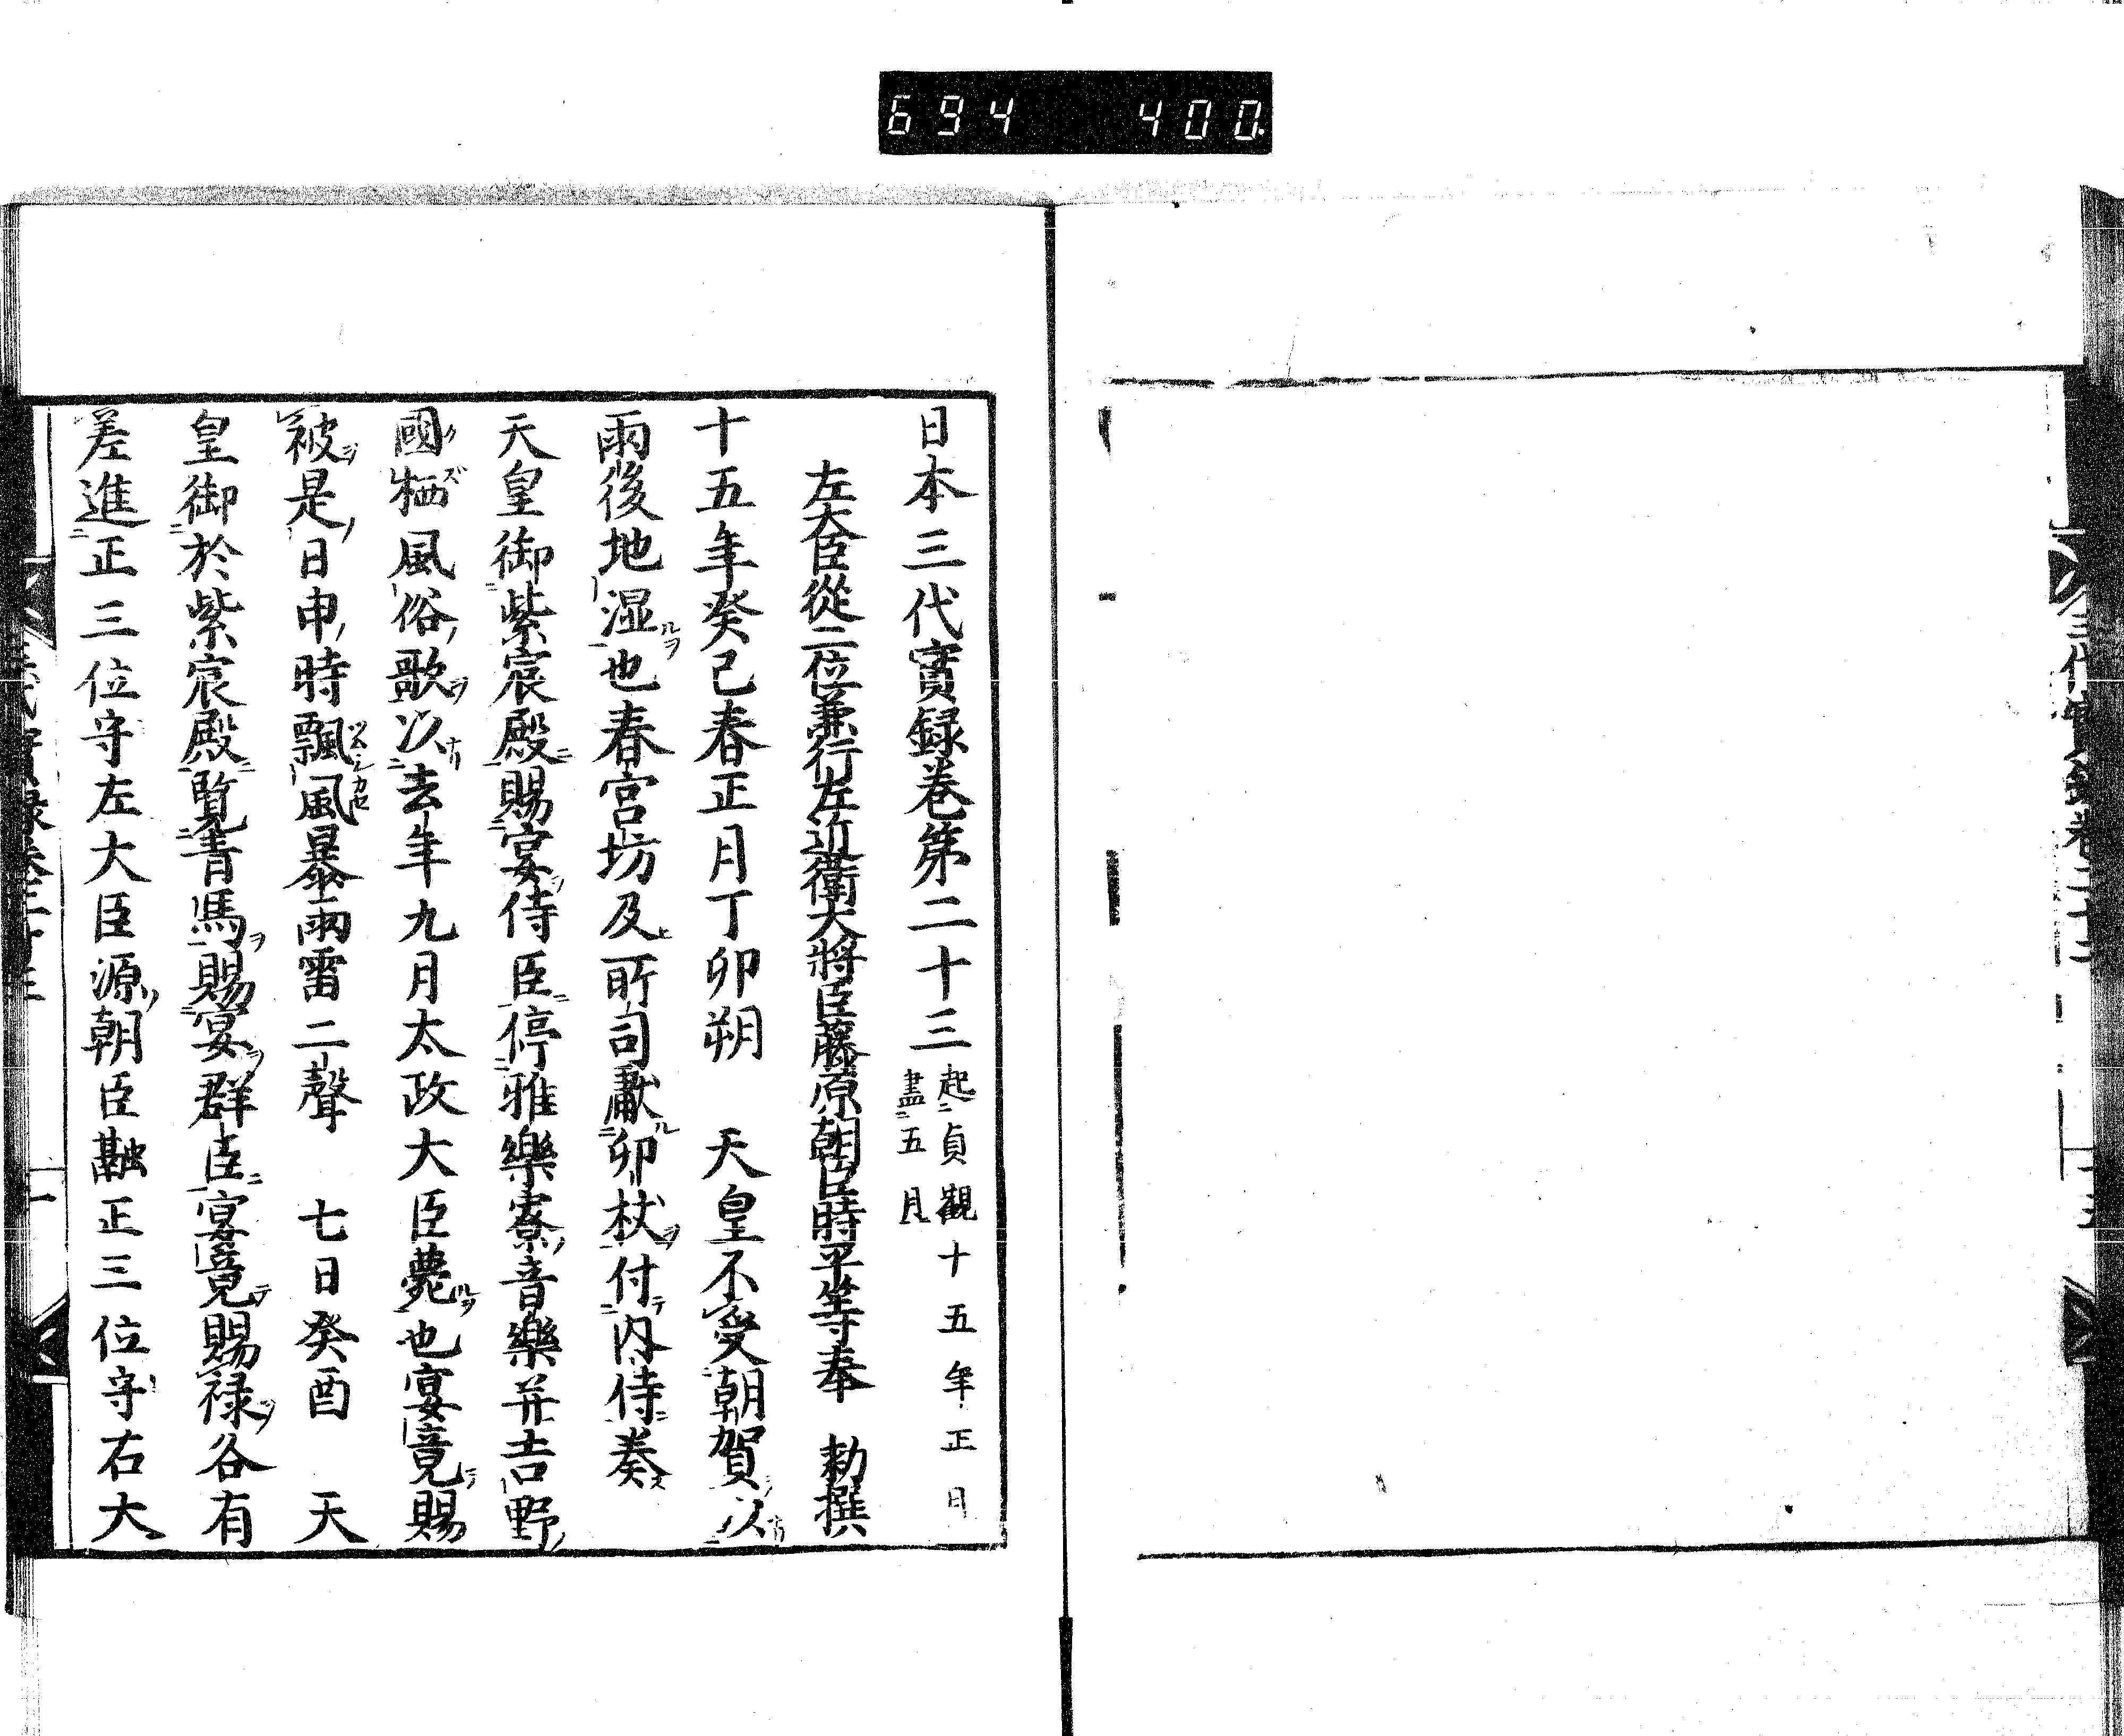 694 400
日本三代實録卷第二十三 起貞觀十五年正月盡五月
左大臣從二位兼行左近衛大將臣藤原朝臣時平等奉 勅撰
十五年癸巳春正月丁卯朔 天皇不受朝賀以
雨後地湿也春宮坊及所司獻卯杖付内侍奏
天皇御紫宸殿賜宴侍臣停雅樂寮音樂并吉野
國栖風俗歌以去年九月太政大臣薨也宴竟賜
被是日申時飄風暴雨雷二聲 七日癸酉 天
皇御於紫宸殿覧青馬賜宴群臣宴竟賜禄各有
差進正三位守左大臣源朝臣融正三位守右大